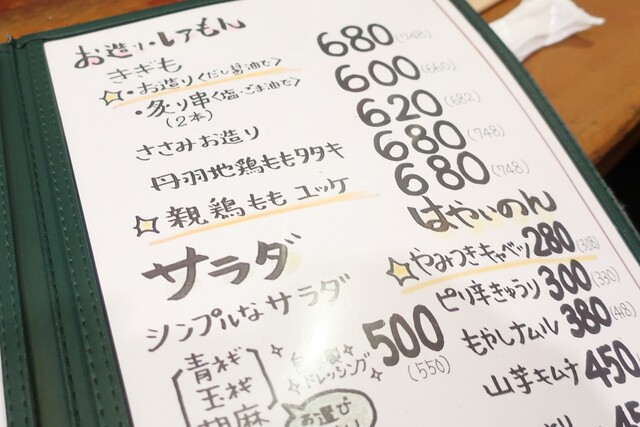 お造り・レアもん
きぎも
・お造り〈だし醤油で〉 680 (748)
・炙り串〈塩・ごま油で〉 600 (660)
(2本)
ささみお造り 620 (682)
丹羽地鶏ももタタキ 680 (748)
親鶏もも ユッケ 680 (748)
サラダ
シンプルなサラダ
500
(550)
青ネギ
玉ネギ
胡麻
自家製
ドレッシング
お選び
はやいのん
やみつきキャベツ 280 (308)
ピリ辛きゅうり 300 (330)
もやしナムル 380 (418)
山芋キムチ 450